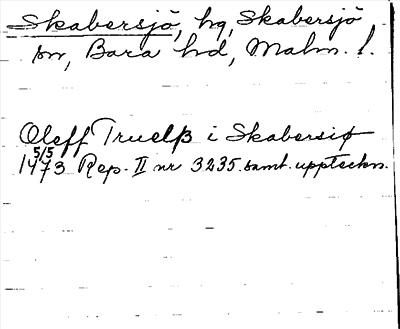 Skabersjö, hg, Skabersjö
sn, Bara hd, Malm. l.
Oleff Truelß i Skabersiø
5/5
1473 Rep. II nr 3235. samt. uppteckn.